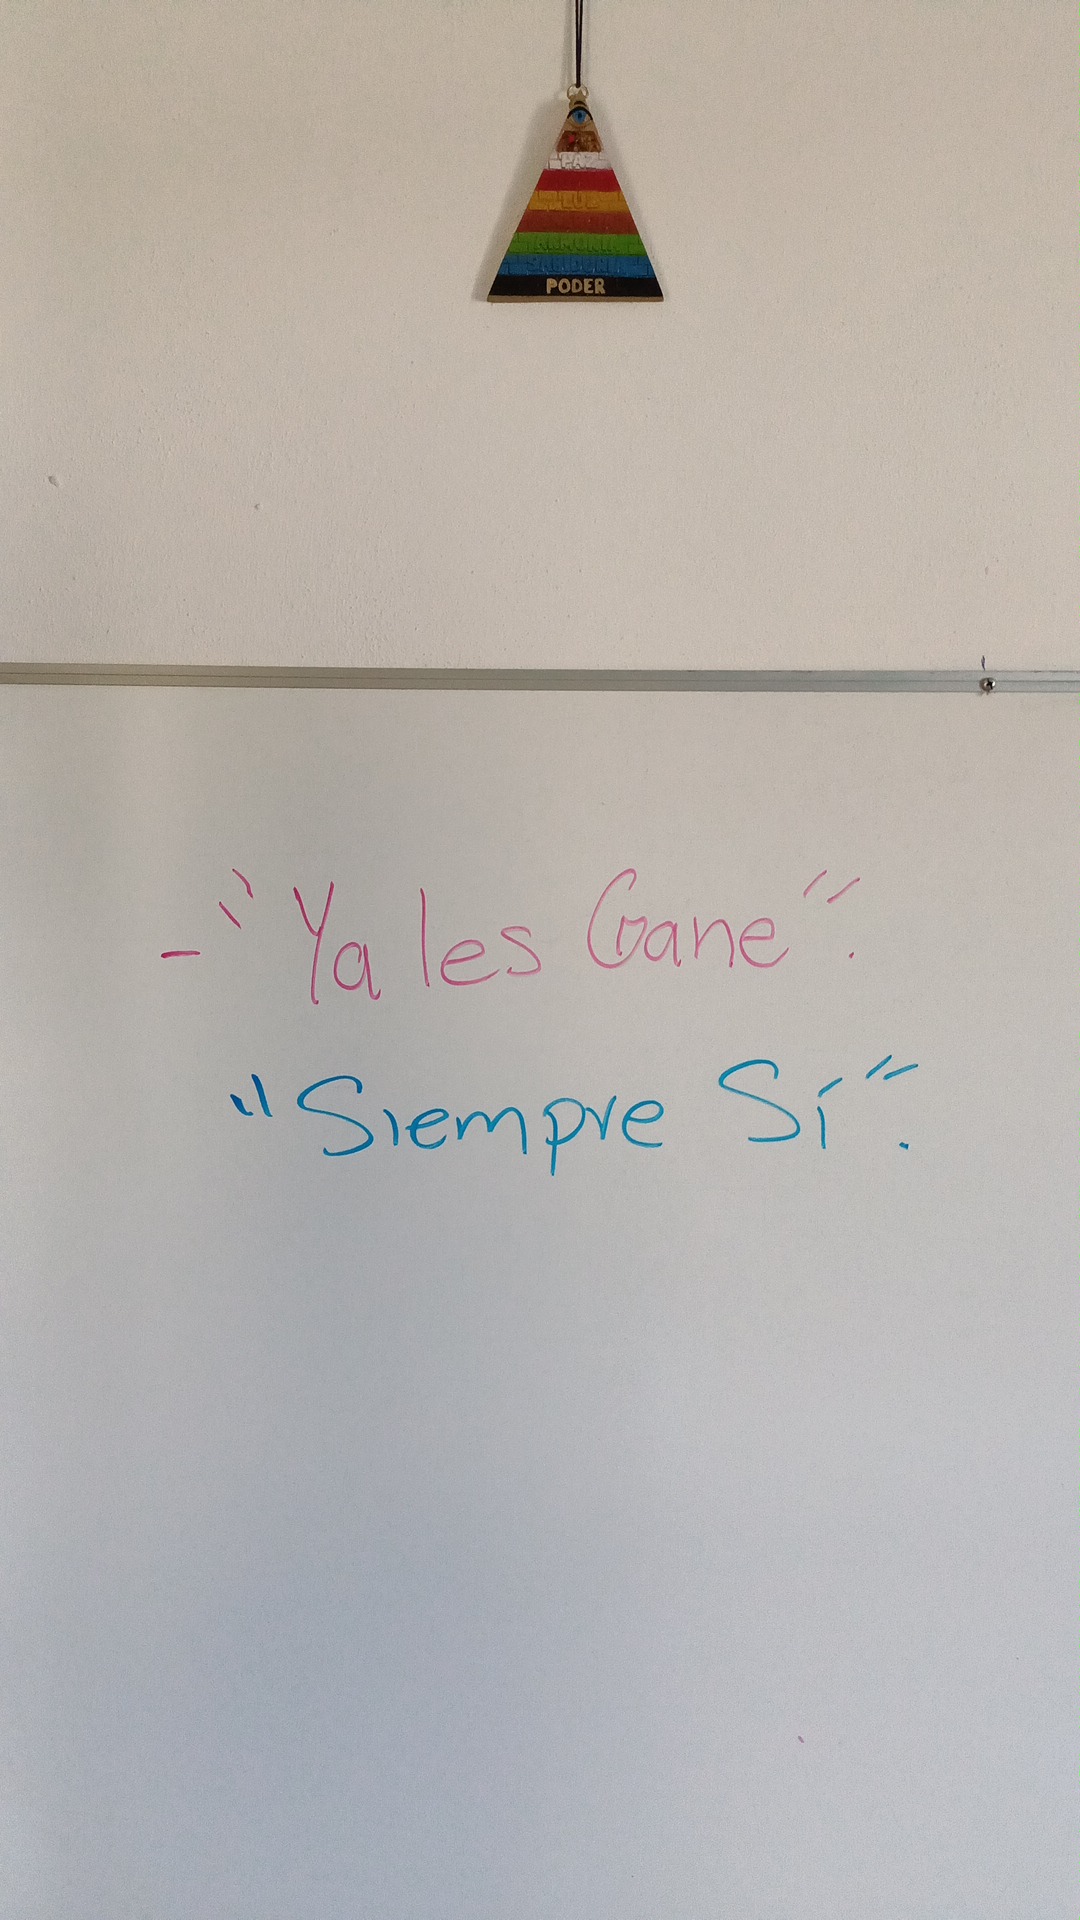 PAZ
LUZ
ARMONIA
SABIDURIA
PODER
- "Ya les Gane".
"Siempre Sí".